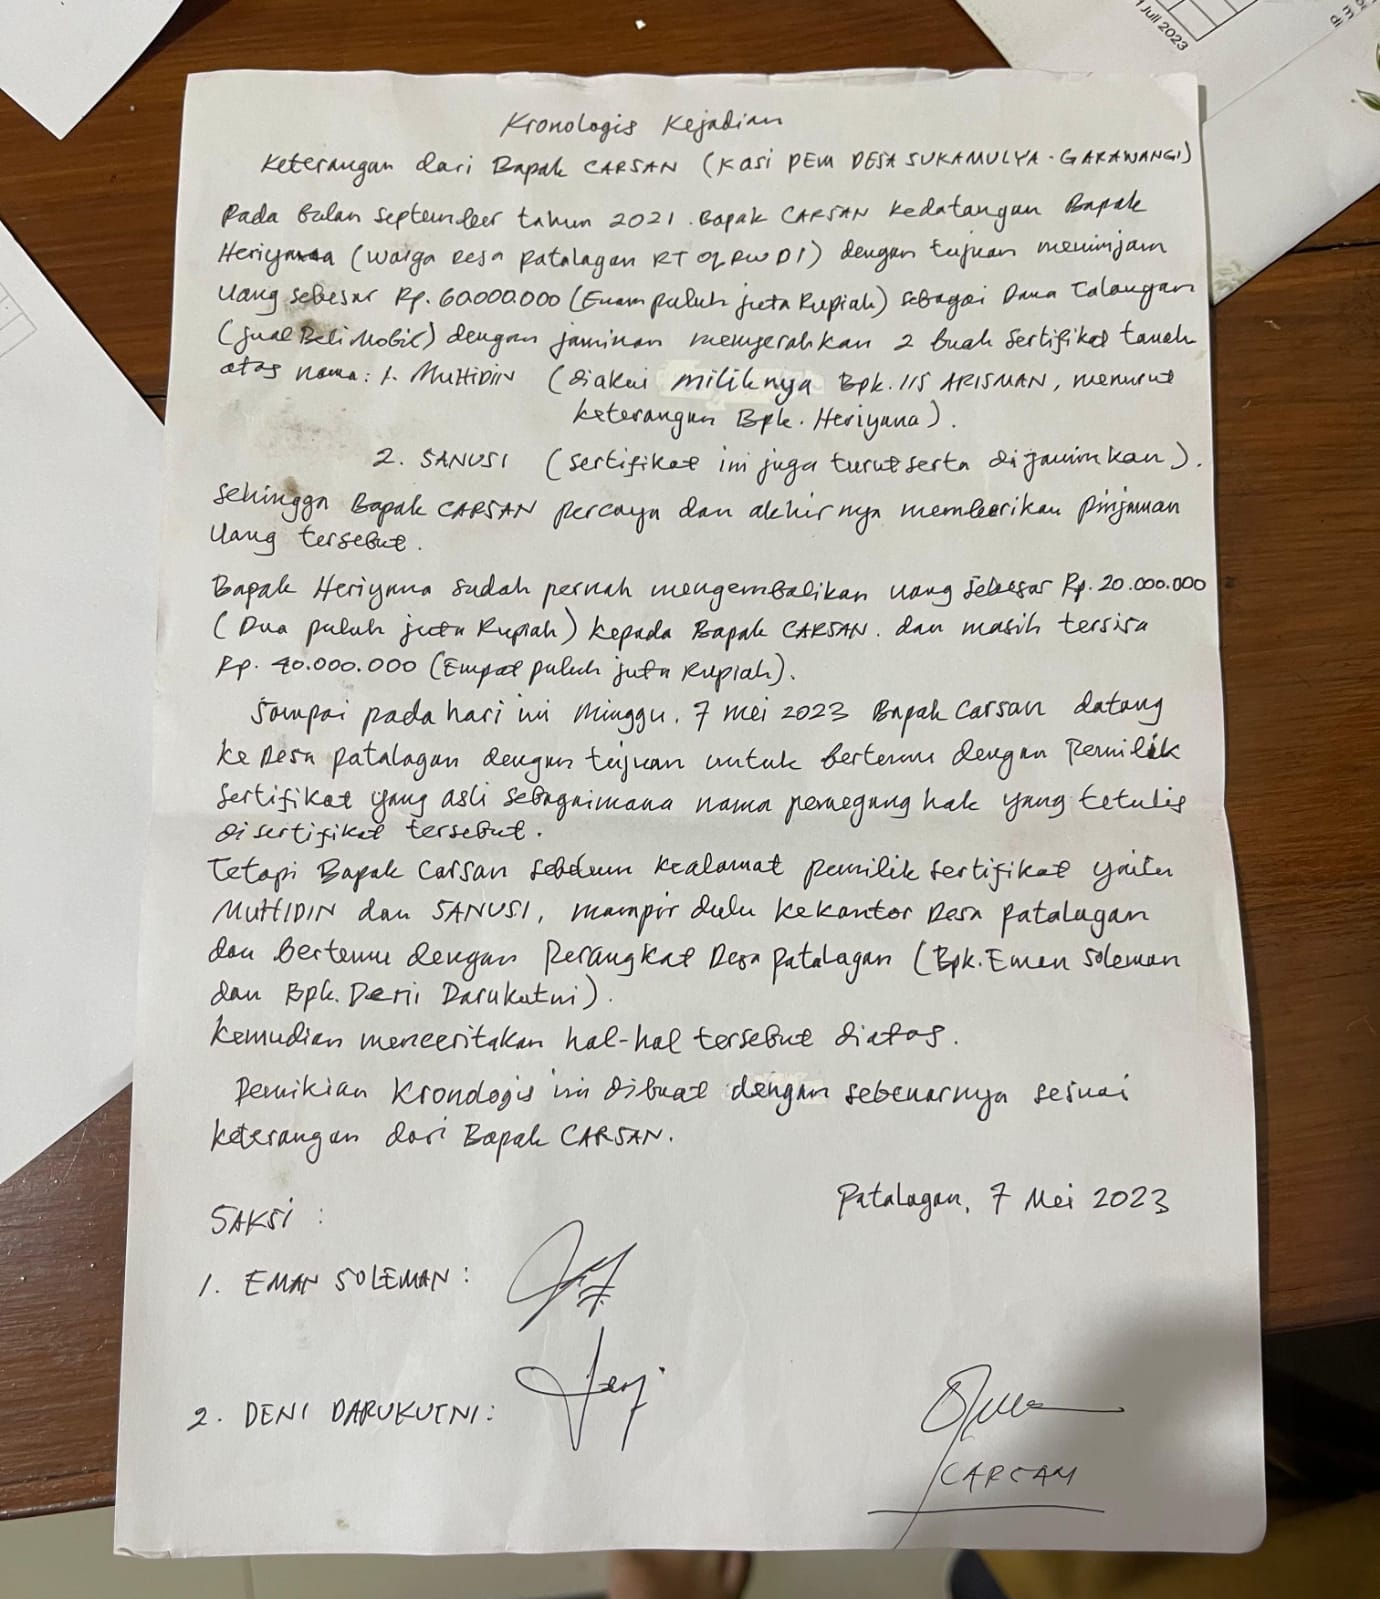 1 Juli 2023
Kronologis Kejadian
Keterangan dari Bapak CARSAN (Kasi PEM DESA SUKAMULYA - GARAWANGI)
Pada bulan September tahun 2021. Bapak CARSAN kedatangan Bapak
Heriyana (warga Desa Patalagan RT 02 RW 01) dengan tujuan meminjam
Uang sebesar Rp. 60.000.000 (Enam puluh juta Rupiah) sebagai Dana Talangan
(Jual Beli Mobil) dengan jaminan menyerahkan 2 buah sertifikat tanah
atas nama: 1. MUHIDIN (diakui miliknya Bpk. IIS ARISMAN, menurut
keterangan Bpk. Heriyana).
2. SANUSI (sertifikat ini juga turut serta dijaminkan).
Sehingga Bapak CARSAN percaya dan akhirnya memberikan pinjaman
Uang tersebut.
Bapak Heriyana sudah pernah mengembalikan uang sebesar Rp. 20.000.000
(Dua puluh juta Rupiah) kepada Bapak CARSAN. dan masih tersisa
Rp. 40.000.000 (Empat puluh juta Rupiah).
Sampai pada hari ini Minggu, 7 Mei 2023 Bapak Carsan datang
ke Desa Patalagan dengan tujuan untuk bertemu dengan Pemilik
Sertifikat yang asli sebagaimana nama pemegang hak yang tetulis
disertifikat tersebut.
Tetapi Bapak Carsan sebelum kealamat pemilik sertifikat yaitu
MUHIDIN dan SANUSI, mampir dulu kekantor Desa Patalagan
dan bertemu dengan Perangkat Desa Patalagan (Bpk. Eman Soleman
dan Bpk. Deni Darukutni).
Kemudian menceritakan hal-hal tersebut diatas.
Demikian Kronologis ini dibuat dengan sebenarnya sesuai
keterangan dari Bapak CARSAN.
Patalagan, 7 Mei 2023
SAKSI :
1. EMAN SOLEMAN :
2. DENI DARUKUTNI :
CARSAN